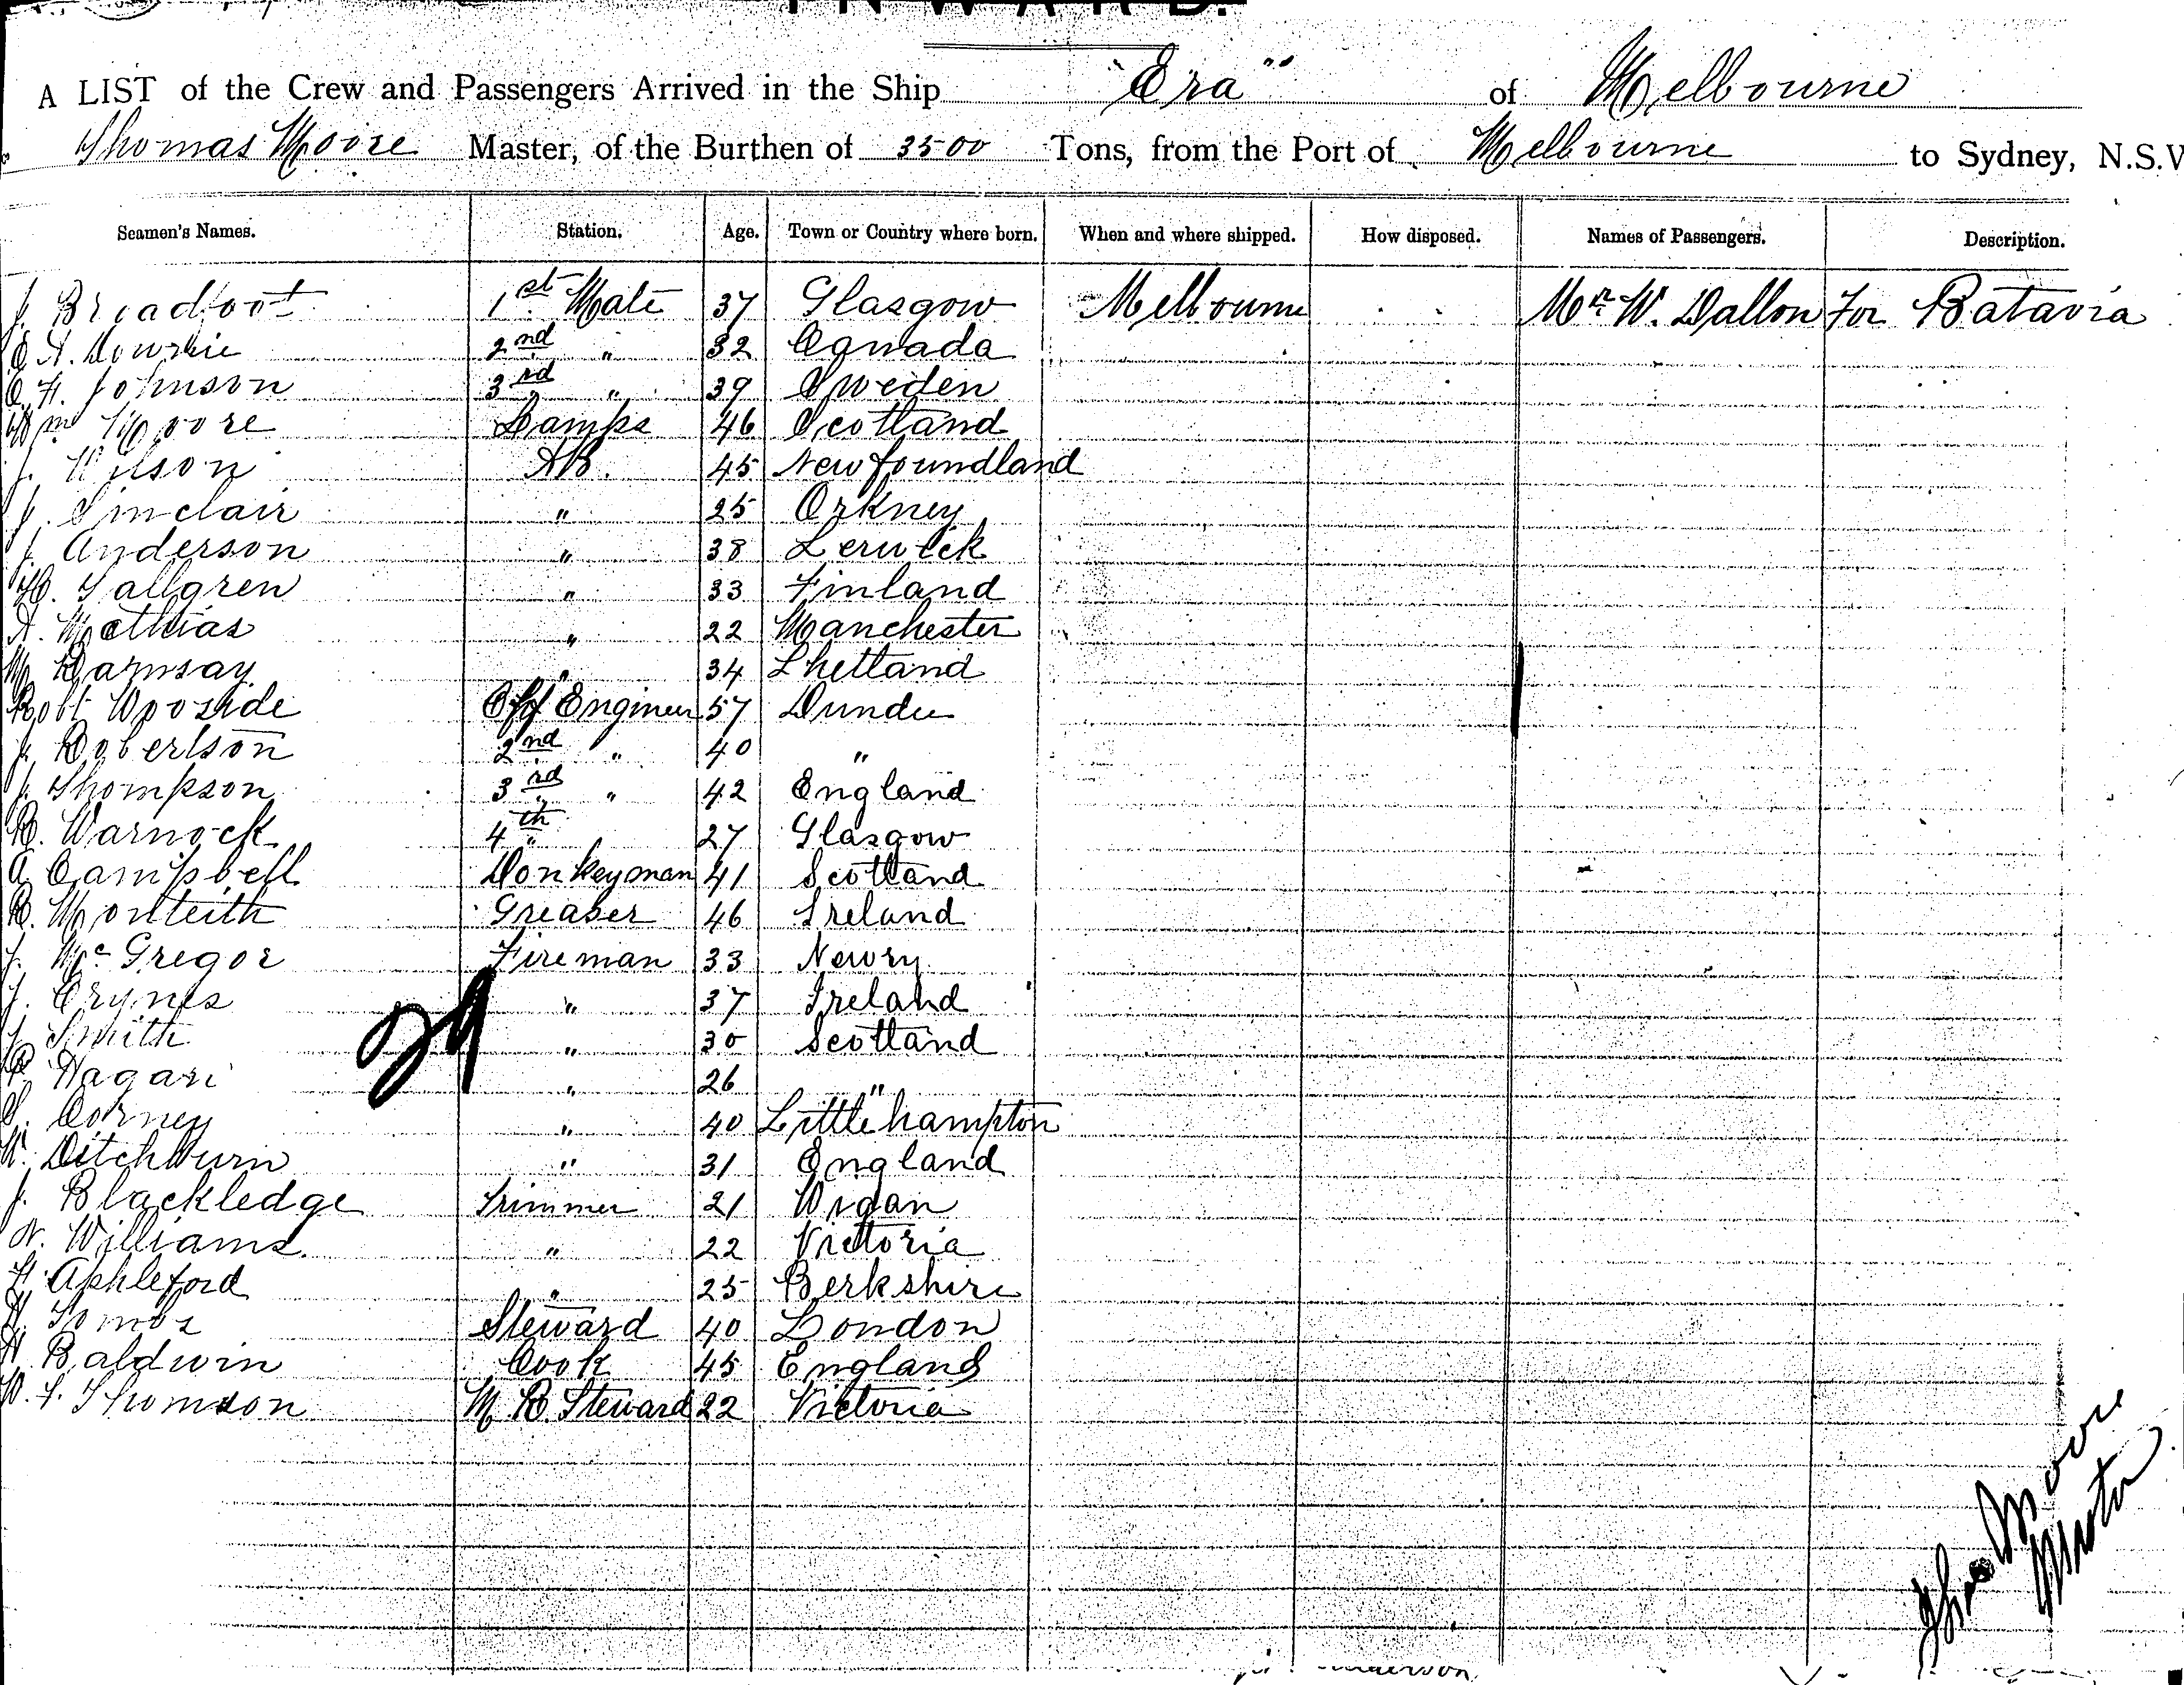 INWARD.
A LIST of the Crew and Passengers Arrived in the Ship "Era" of Melbourne
Thomas Moore Master, of the Burthen of 3500 Tons, from the Port of Melbourne to Sydney, N.S.W
Seamen's Names. Station. Age. Town or Country where born. When and where shipped. How disposed. Names of Passengers. Description.
J. Broadfoot 1st Mate 37 Glasgow Melbourne Mr. W. Dallon for Batavia
A. Downie 2nd " 32 Canada
C. H. Johnson 3rd " 39 Sweden
Wm Moore Lamps 46 Scotland
J. Wilson AB. 45 Newfoundland
J. Sinclair " 25 Orkney
J. Anderson " 38 Lerwick
H. Tallgren " 33 Finland
A. Mathias " 22 Manchester
M. Ramsay " 34 Shetland
Robt Wooside Chf Engineer 57 Dundee
J. Robertson 2nd " 40 "
J. Thompson 3rd " 42 England
R. Warnock 4th " 27 Glasgow
A. Campbell Donkeyman 41 Scotland
R. Monteith Greaser 46 Ireland
J. McGregor Fireman 33 Newry
J. Crynes " 37 Ireland
J. Smith " 30 Scotland
P. Hagari " 26 "
S. Corney " 40 Littlehampton
W. Ditchburn " 31 England
J. Blackledge Trimmer 21 Wigan
W. Williams " 22 Victoria
H. Aphleford " 25 Berkshire
H. Tombs Steward 40 London
H. Baldwin Cook 45 England
W. F. Thomson M R Steward 22 Victoria
29
Thos Moore
Master